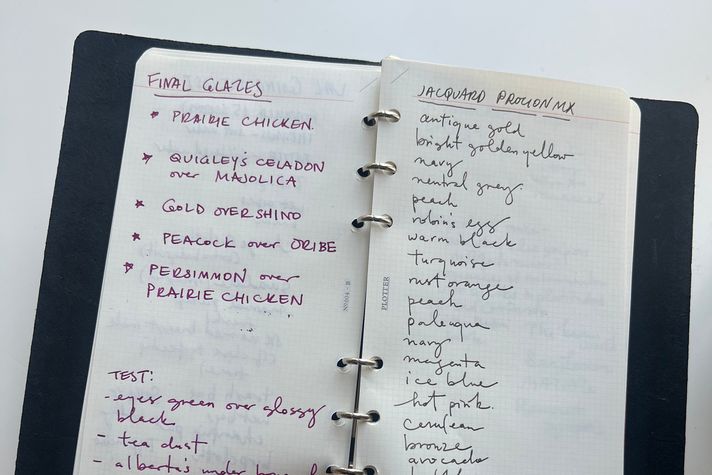 FINAL GLAZES
* PRAIRIE CHICKEN.
* QUIGLEY'S CELADON
over MAJOLICA
* GOLD OVER SHINO
* PEACOCK over ORIBE
* PERSIMMON over
PRAIRIE CHICKEN
TEST:
- eyes green over glossy
black
- tea dust
- alberta's under
No004-B
PLOTTER
JACQUARD PROCION MX
antique gold
bright golden yellow
navy
neutral grey.
peach
robin's egg
warm black
turquoise
rust orange
peach
pale aqua
navy
magenta
ice blue
hot pink.
cerulean
bronze
avocado